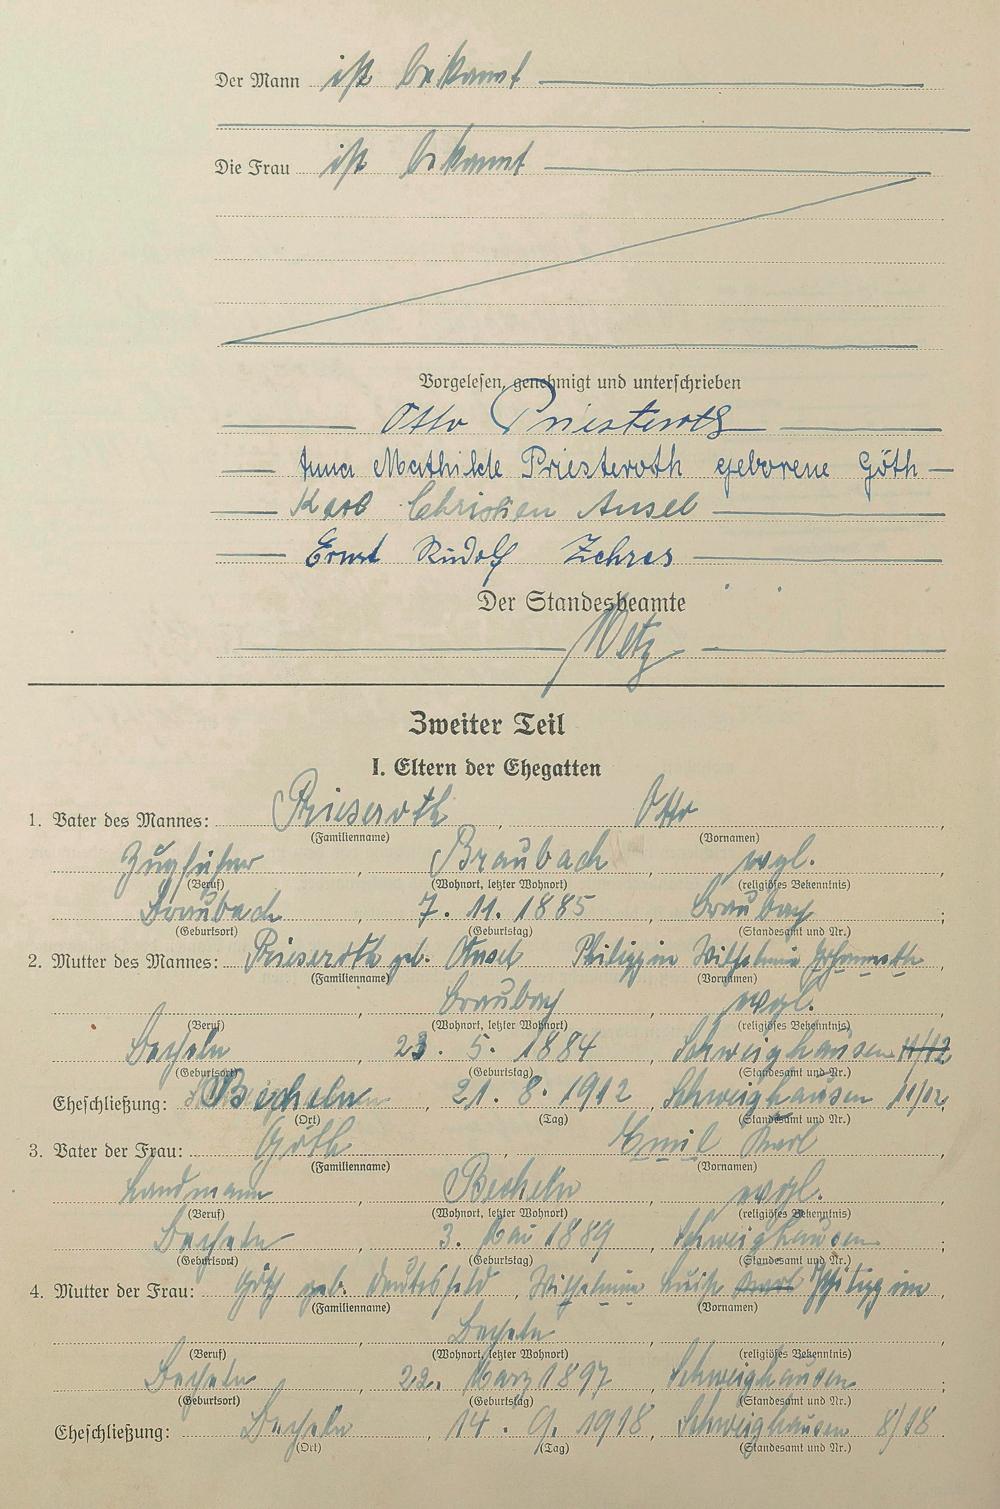 Der Mann ist bekannt
Die Frau ist bekannt
Vorgelesen, genehmigt und unterschrieben
Otto Priesteroth
Anna Mathilde Priesteroth geborene Göth
Karl Christian Ansel
Ernst Rudolf Zehres
Der Standesbeamte
Metz
Zweiter Teil
I. Eltern der Ehegatten
1. Vater des Mannes: Prieseroth, Otto,
(Familienname) (Vornamen)
Zugführer, Braubach, evgl.
(Beruf) (Wohnort, letzter Wohnort) (religiöses Bekenntnis)
Braubach, 7. 11. 1885, Braubach;
(Geburtsort) (Geburtstag) (Standesamt und Nr.)
2. Mutter des Mannes: Prieseroth geb. Ansel Philippin Wilhelmine,
(Familienname) (Vornamen)
Braubach, evgl.
(Beruf) (Wohnort, letzter Wohnort) (religiöses Bekenntnis)
Becheln, 23. 5. 1884, Schweighausen
(Geburtsort) (Geburtstag) (Standesamt und Nr.)
Eheschließung: Becheln, 21. 8. 1912, Schweighausen 11/12.
(Ort) (Tag) (Standesamt und Nr.)
3. Vater der Frau: Göth, Emil Karl,
(Familienname) (Vornamen)
Landmann, Becheln, evgl.
(Beruf) (Wohnort, letzter Wohnort) (religiöses Bekenntnis)
Becheln, 3. Mai 1889, Schweighausen;
(Geburtsort) (Geburtstag) (Standesamt und Nr.)
4. Mutter der Frau: Göth geb., Wilhelmine Luise Philippine,
(Familienname) (Vornamen)
Becheln
(Beruf) (Wohnort, letzter Wohnort) (religiöses Bekenntnis)
Becheln, 22. März 1897, Schweighausen;
(Geburtsort) (Geburtstag) (Standesamt und Nr.)
Eheschließung: Becheln, 14. 9. 1918, Schweighausen 8/18.
(Ort) (Tag) (Standesamt und Nr.)